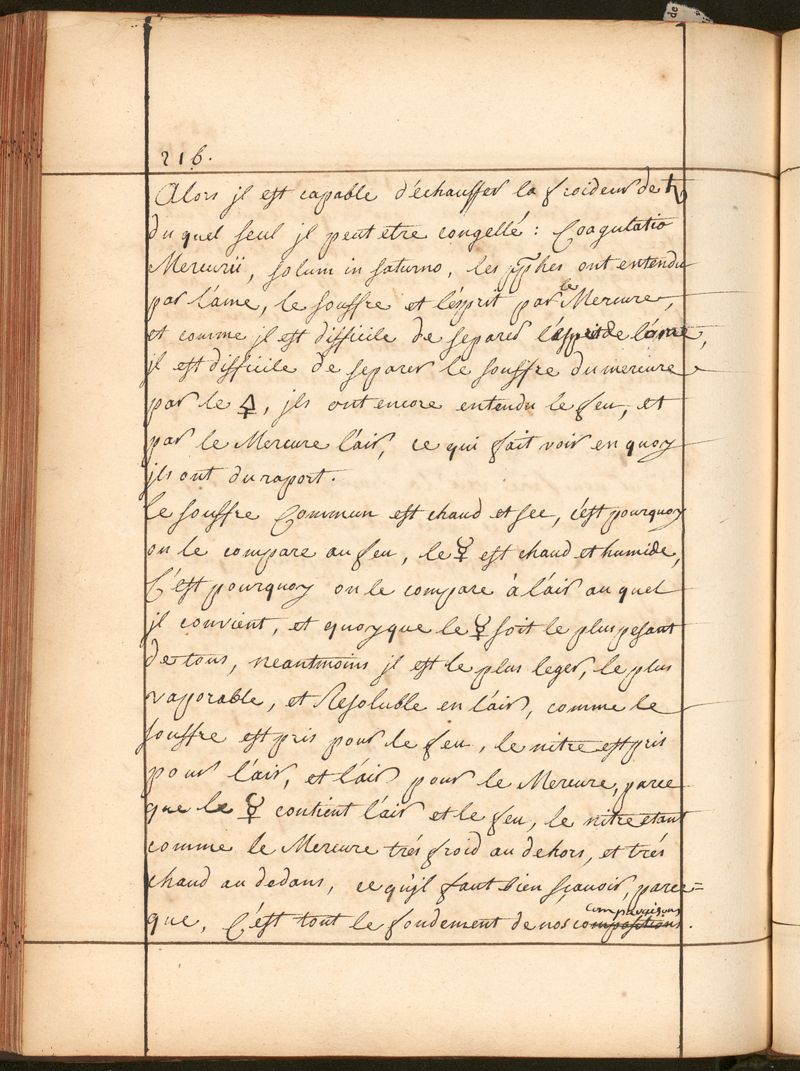 216.
Alors jl est capable d'échauffer la froideur de ♄
du quel seul jl peut etre congellé : Coagulatio
Mercurii, solum in saturno, les pp̄hes ont entendu
par l'ame, le souffre et l'esprit par le Mercure,
et comme jl est difficile de separer l'esprit de l'ame,
jl est difficile de separer le souffre du mercure
par le 🜍, jls ont encore entendu le feu, et
par le Mercure l'air, ce qui fait voir en quoy
jls ont du raport.
Le souffre Commun est chaud et sec, c'est pourquoy
on le compare au feu, le ☿ est chaud et humide,
C'est pourquoy on le compare à l'air au quel
jl convient, et quoyque le ☿ soit le plus pesant
de tous, neantmoins jl est le plus leger, le plus
vaporable, et Resoluble en l'air, comme le
souffre est pris pour le feu, le nitre est pris
pour l'air, et l'air pour le Mercure, parce
que le ☿ contient l'air et le feu, le nitre etant
comme le Mercure trés froid au dehors, et trés
chaud au dedans, ce qu'jl faut bien sçavoir, parce=
que, C'est tout le fondement de nos compositions comparaisons.